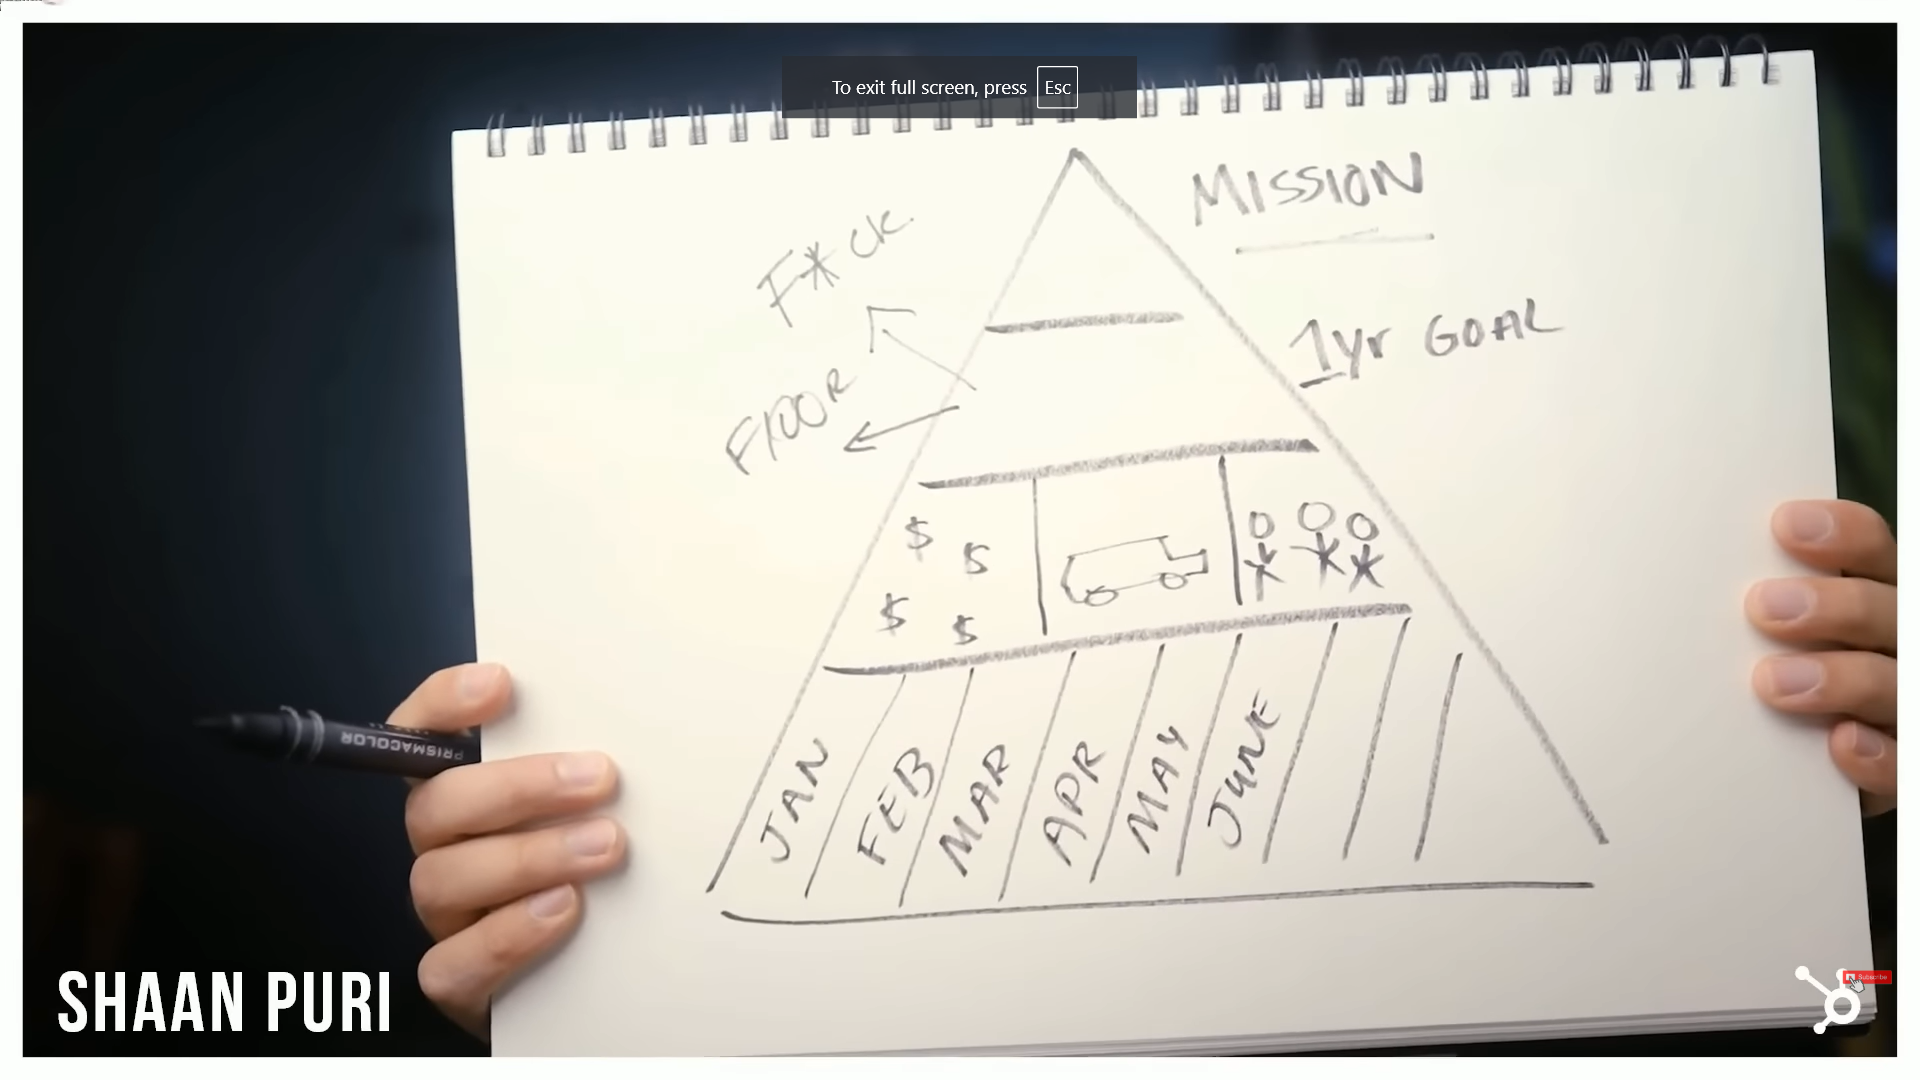 To exit full screen, press Esc
MISSION
F*ck
1yr GOAL
FLOOR
$ $
$ $
JAN FEB MAR APR MAY JUNE
PRISMACOLOR
SHAAN PURI
Subscribe